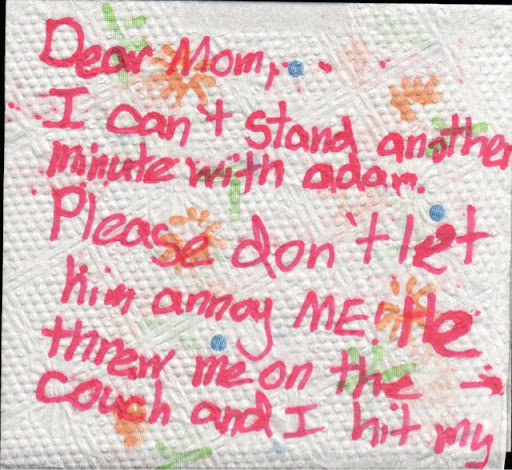 Dear Mom,
I can't stand another
minute with adam.
Please don't let
him annoy ME! He
threw me on the
couch and I hit my